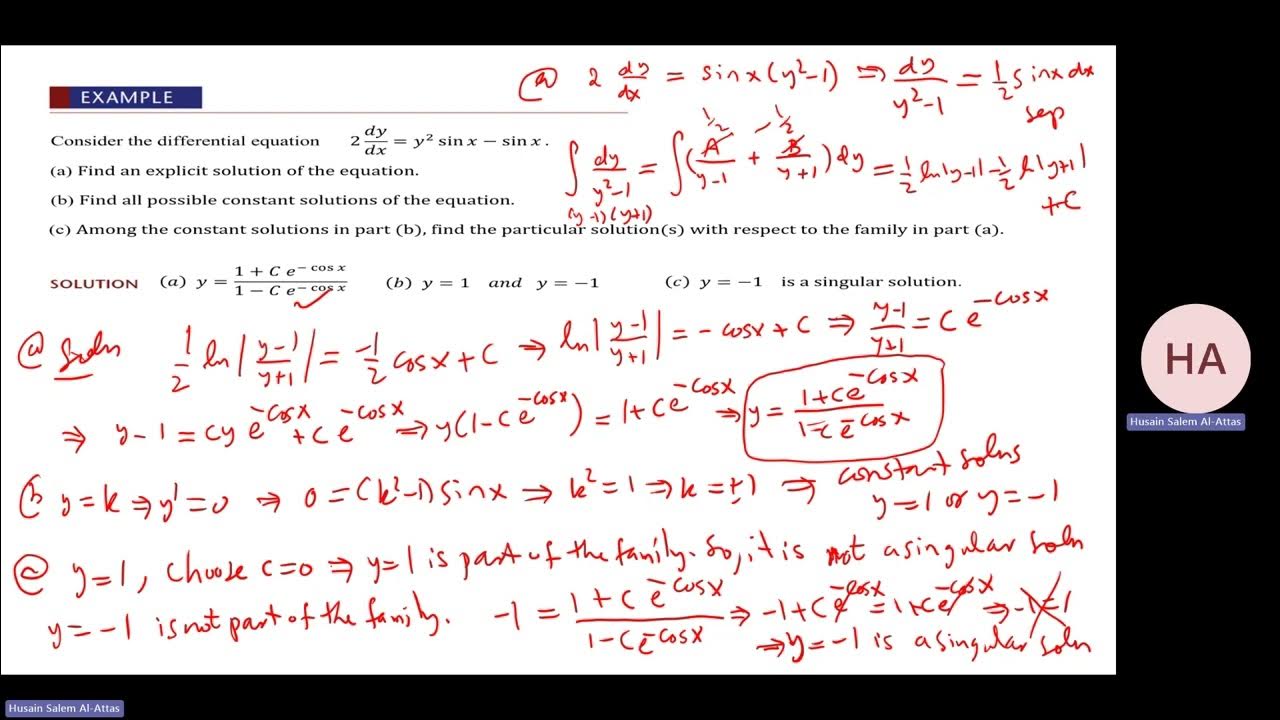 EXAMPLE
Consider the differential equation 2 dy/dx = y² sin x − sin x .
(a) Find an explicit solution of the equation.
(b) Find all possible constant solutions of the equation.
(c) Among the constant solutions in part (b), find the particular solution(s) with respect to the family in part (a).
SOLUTION (a) y = (1 + C e^(− cos x))/(1 − C e^(− cos x)) (b) y = 1 and y = −1 (c) y = −1 is a singular solution.
(a) 2 dy/dx = sin x (y²−1) ⇒ dy/(y²−1) = 1/2 sin x dx
sep
∫ dy/(y²−1) = ∫ (A/(y−1) + B/(y+1)) dy = 1/2 ln|y−1| − 1/2 ln|y+1|
1/2 −1/2
(y−1)(y+1)
+C
(a) Soln 1/2 ln |(y−1)/(y+1)| = −1/2 cos x + C ⇒ ln |(y−1)/(y+1)| = − cos x + C ⇒ (y−1)/(y+1) = C e^(−cos x)
⇒ y − 1 = C y e^(−cos x) + C e^(−cos x) ⇒ y(1 − C e^(−cos x)) = 1 + C e^(−cos x) ⇒ y = (1 + C e^(−cos x))/(1 − C e^(−cos x))
(b) y = k ⇒ y' = 0 ⇒ 0 = (k²−1) sin x ⇒ k² = 1 ⇒ k = ±1 ⇒ constant solns
y = 1 or y = −1
y = 1, choose c = 0 ⇒ y = 1 is part of the family. So, it is not a singular soln
y = −1 is not part of the family. −1 = (1 + C e^(−cos x))/(1 − C e^(−cos x)) ⇒ −1 + C e^(−cos x) = 1 + C e^(−cos x) ⇒ −1 = 1
⇒ y = −1 is a singular soln
HA
Husain Salem Al-Attas
Husain Salem Al-Attas